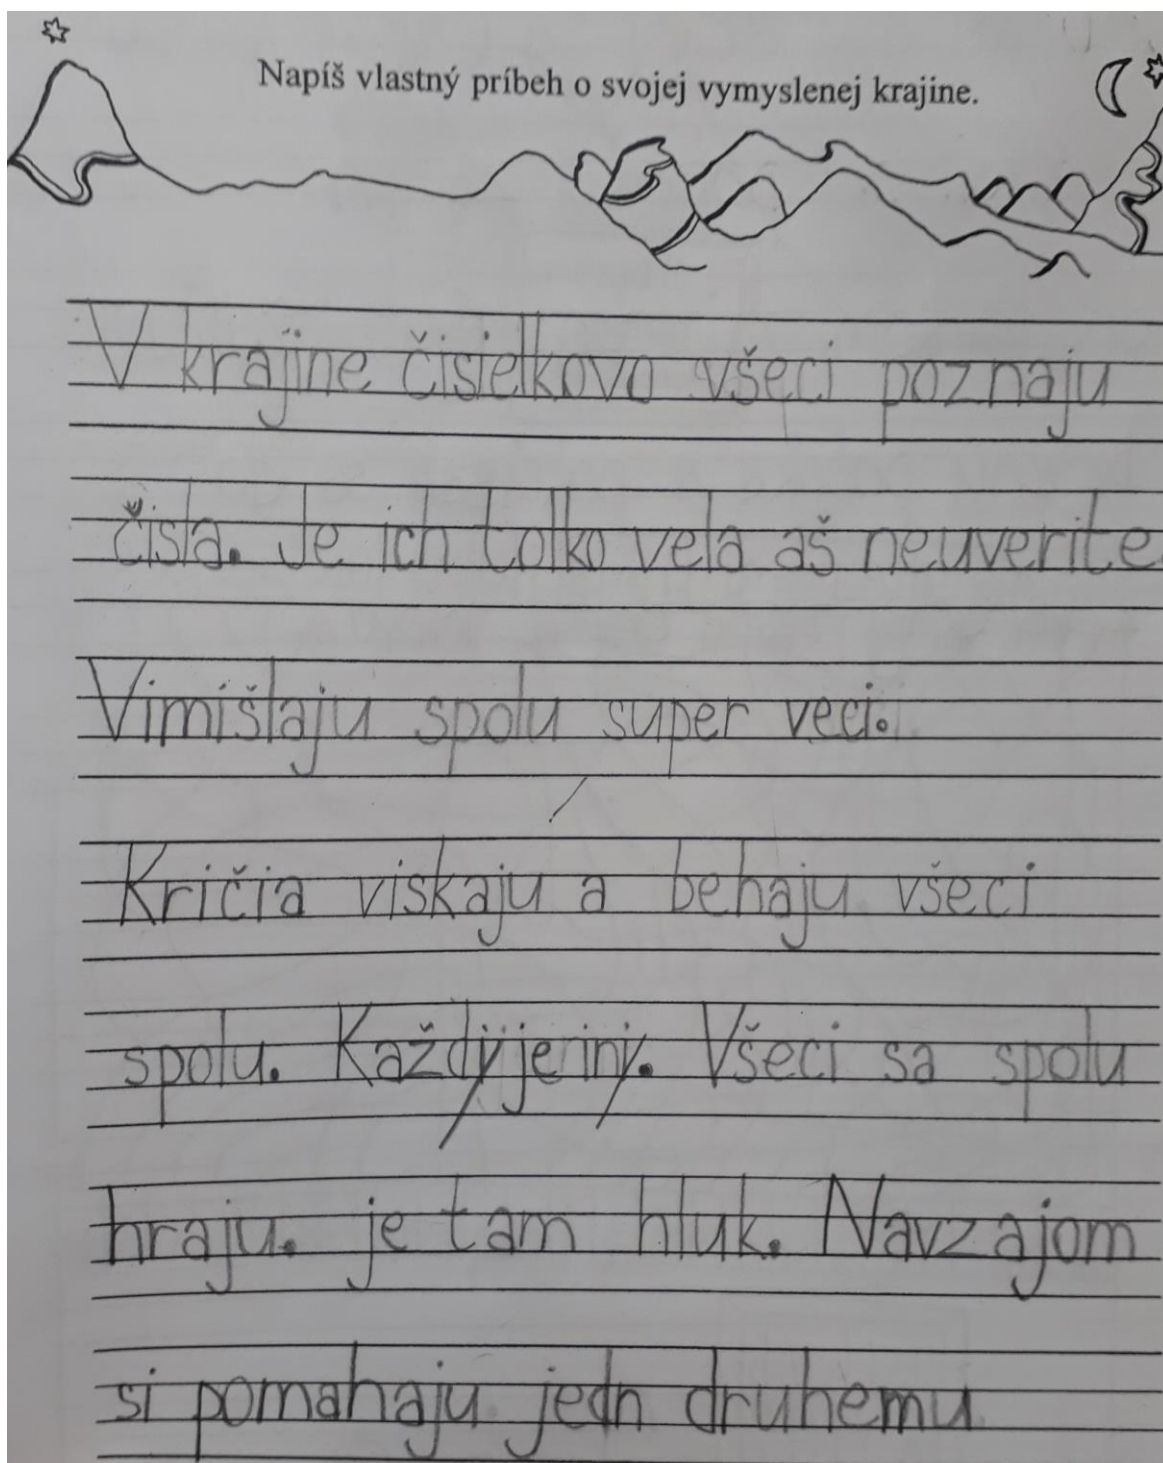 Napíš vlastný príbeh o svojej vymyslenej krajine.
V krajine čisielkovo všeci poznaju
čisla. Je ich tolko vela aš neuverite
Vimišlaju spolu super veci.
Kričia viskaju a behaju všeci
spolu. Každý je iný. Všeci sa spolu
hraju. je tam hluk. Navzajom
si pomahaju jedn druhemu